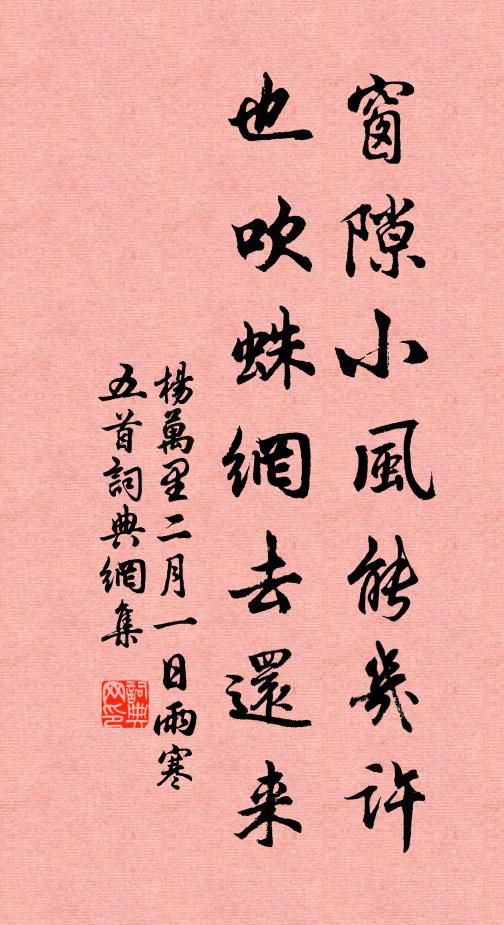 窗隙小風能幾許
也吹蛛網去還来
楊萬里二月一日雨寒
五首詞典網集
詞典
网印